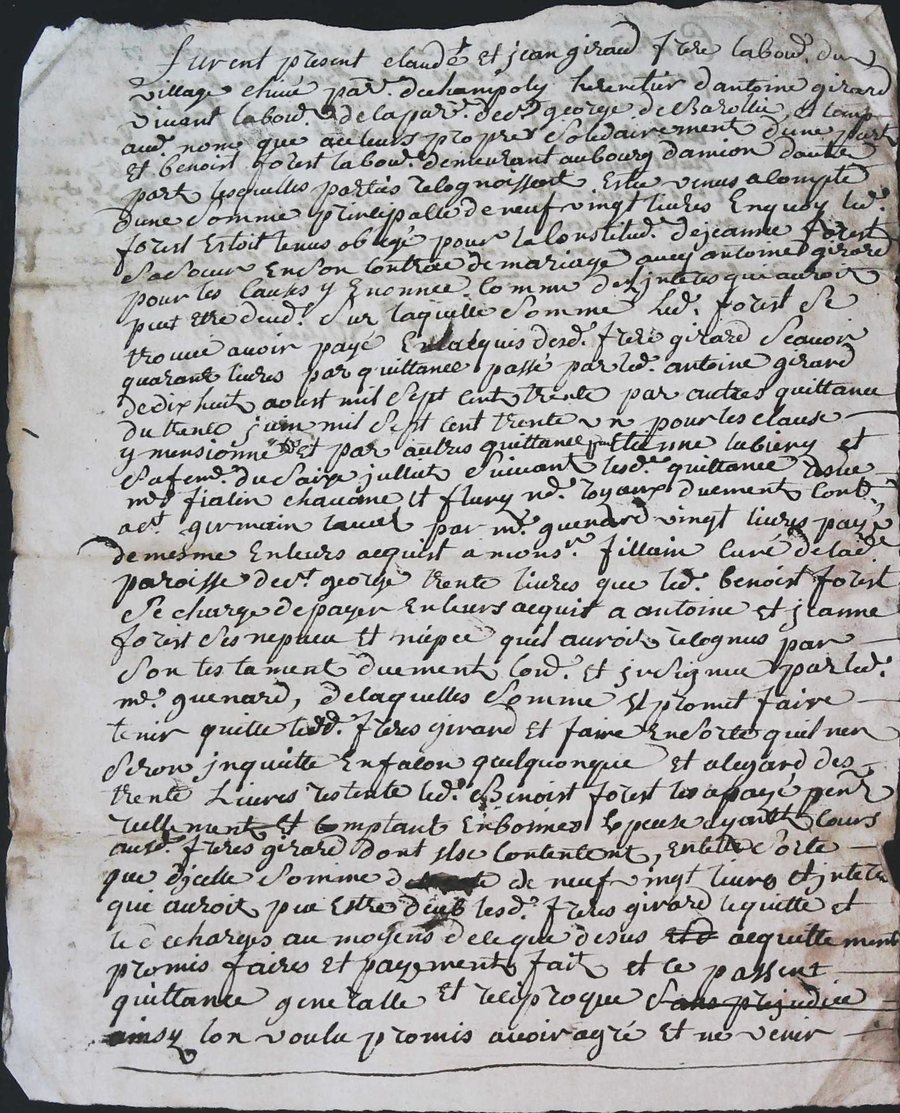 furent present claude et jean girard frere labour. du
village chivé par. de champoly herentier d'antoine girard
vivant labour de la par. de st george de Barolle, et tamp
aud. nom que a leurs propres solidairement d'une part
Et benoist forest labour. demeurant au bourg d'amion d'autre
part lesquelles partiés recognoissent Estre venus a compte
d'une somme principalle de neuf vingt livres En quoy led.
forest Estoit tenus obligé pour la Constitud. de jeanne forest
sa soeur En son contrac de mariage avecq antoine girard
pour les causes y Enonnée Comme des jnteres que auroit
peut etre deud. sur laquelle somme led. forest se
trouve avoir payé En lacquis desd. frere girard scavoir
quarante livres par quittance passé par led. antoine girard
de dix huit aoust mil sept cent trente par autres quittance
du trente juin mil sept cent trente un pour les clause
y mensionné et par autres quittance Etienne lubiery et
sa fem. du saixe jullut suivant lesd. quittance resue
me fialin chavane et flury nd. royaux duement cont.
act. germain par me guenard vingt livres payé
de mesme En leurs acquist a monsr. fillain curé de lad.
paroisse de st george trente livres que led. benoist forest
se charge de payer En leurs acquit a antoine et jeanne
forest ses nepveu et niepce quil auroit recognus par
son testament duement cond. et jnsignue par led.
me guenard, de laquelles somme Et promet faire
tenir quitte lesdd. freres girard et faire En sorte quil nen
seron jnquitte En facon quelquonque et a legard des
trente Livres restente led. Benoist forest les a payé
reellement Et comptant En bonnes Espeuse ayant Cours
ausd. freres girard dont ils se contentent, En telle sorte
que d'jcelle somme de neuf vingt livres Et jnteres
qui auroit pu Estre deub lesd. freres girard le quitte et
le decharges au moyens de le que desus acquittement
promis faires Et payement fait et ce passent
quittance generalle et reciproque sans prejudice
ainsy lon voulu promis avoir agré Et ne venir